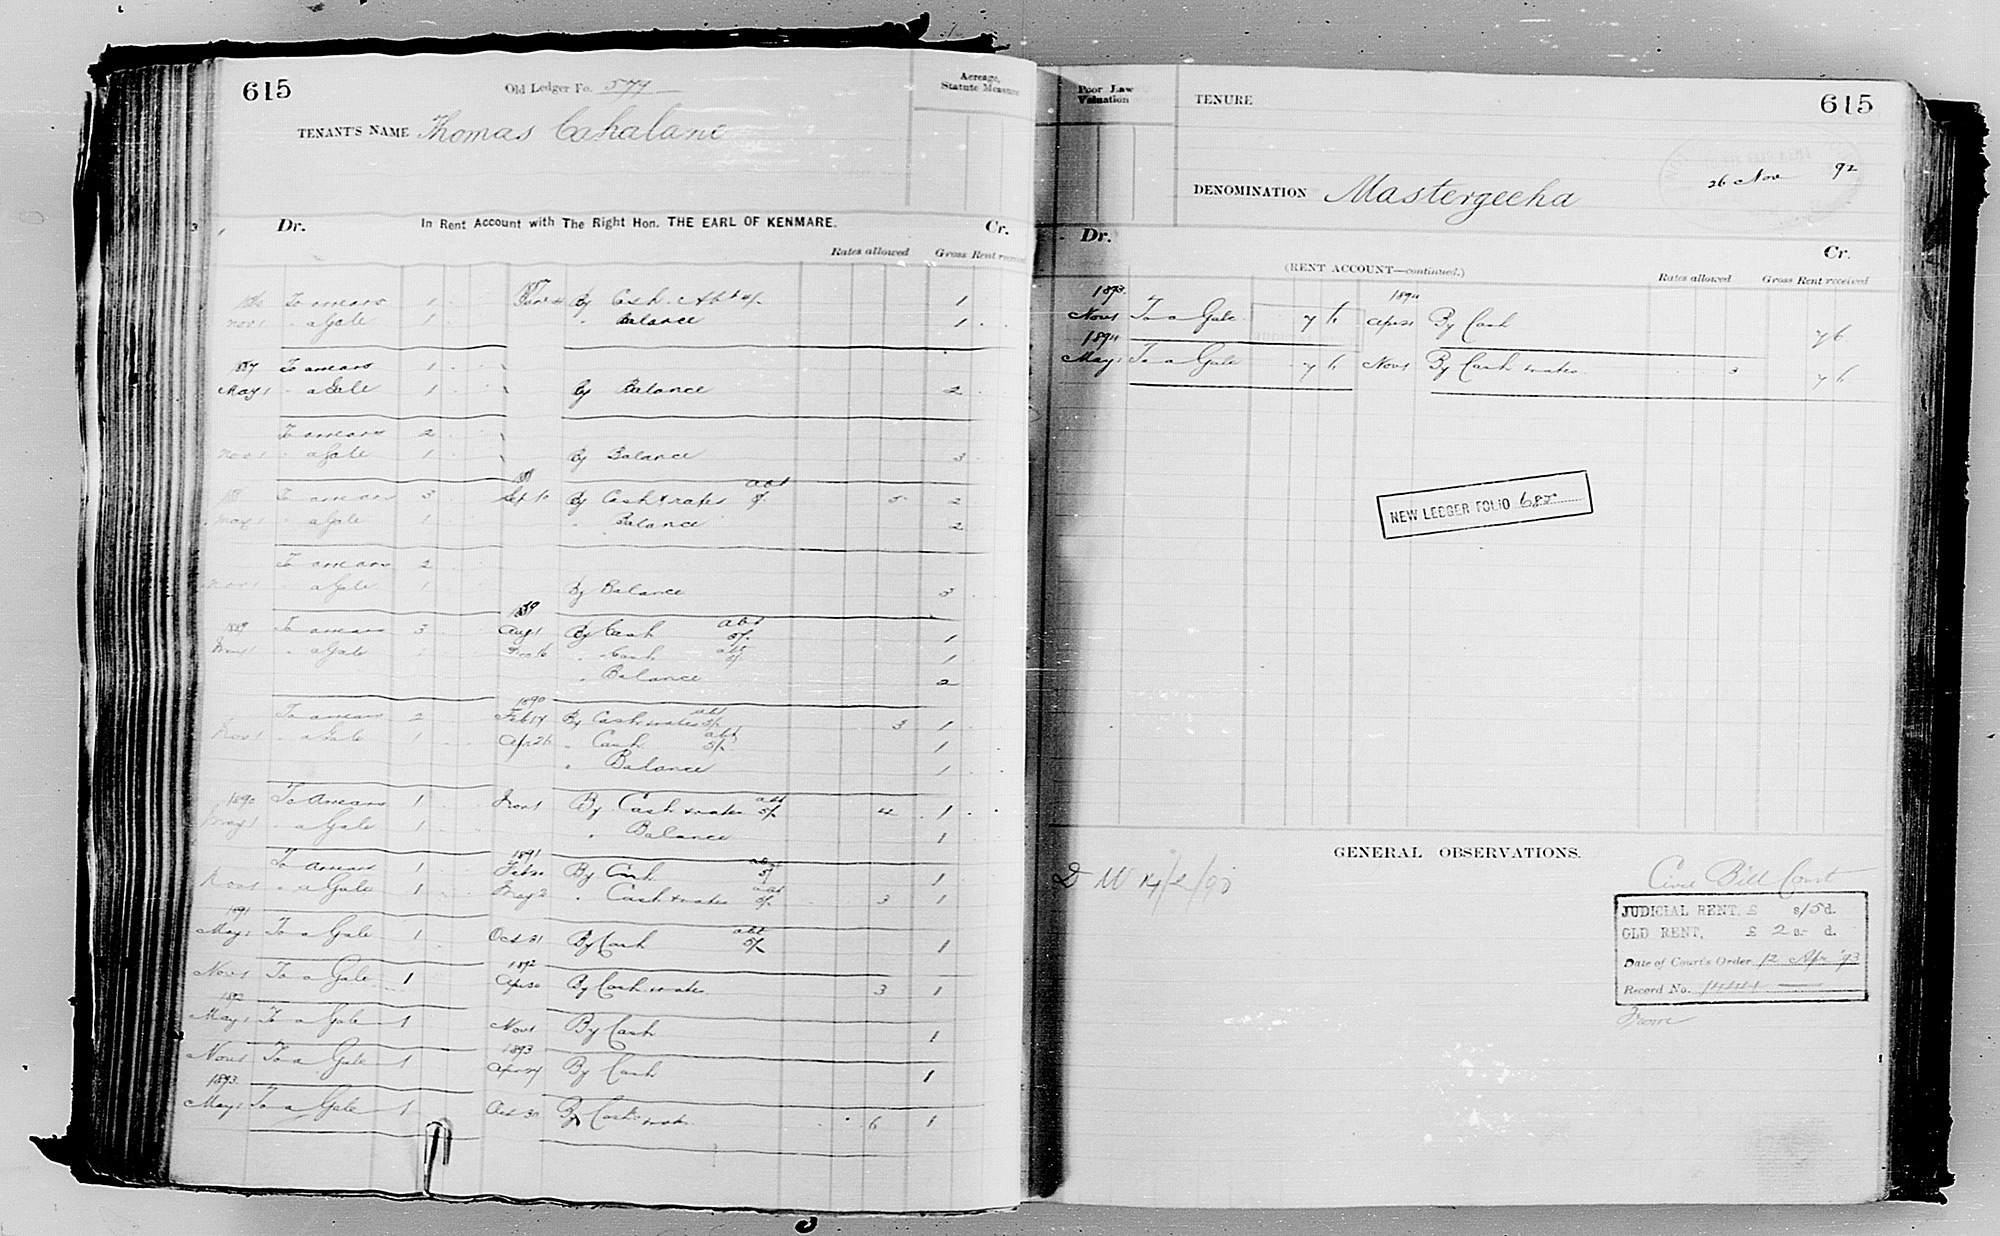 615
Old Ledger Fo. 577
Acreage,
Statute Measure
TENANT'S NAME Thomas Cahalane
Dr. In Rent Account with The Right Hon. THE EARL OF KENMARE. Cr.
Rates allowed Gross Rent received
To arrears 1 By Cash 1
Nov 1 " a Gale 1 " Balance 1
1887 To arrears 1
May 1 " a Gale 1 By Balance 2
To arrears 2
Nov 1 " a Gale 1 By Balance 3
To arrears 3 Sep 10 By Cash & rates abt 5 2
May 1 " a Gale 1 " Balance 2
To arrears 2
Nov 1 " a Gale 1 By Balance 3
1889
1889 To arrears 3 Aug 1 By Cash abt 5/- 1
May 1 " a Gale " Cash abt 5/- 1
" Balance 2
1890
To arrears 2 Feb 17 By Cash & rates abt 5/- 3 1
Nov 1 " a Gale 1 Apr 26 " Cash abt 5/- 1
" Balance 1
1890 To Arrears 1 Nov 1 By Cash & rates abt 5/- 4 1
May 1 " a Gale 1 " Balance 1
1891
To Arrears 1 Feb 20 By Cash abt 5/- 1
Nov 1 " a Gale 1 May 2 " Cash & rates abt 5/- 3 1
1891
May 1 To a Gale 1 Oct 31 By Cash abt 5/- 1
1892
Nov 1 To a Gale 1 Apr 30 By Cash & rates 3 1
1892
May 1 To a Gale 1 Nov 1 By Cash 1
1893
Nov 1 To a Gale 1 Apr 24 By Cash 1
1893
May 1 To a Gale 1 Oct 30 By Cash & rates 6 1
Poor Law
Valuation
TENURE
615
26 Nov 92
DENOMINATION Mastergeeha
Dr. Cr.
(RENT ACCOUNT—continued.)
Rates allowed Gross Rent received
1893 1894
Nov 1 To a Gale 7 6 Apr 21 By Cash 7 6
1894
May 1 To a Gale 7 6 Nov 1 By Cash & rates 3 7 6
NEW LEDGER FOLIO 685
GENERAL OBSERVATIONS.
Civil Bill Court
JUDICIAL RENT, £ s/5 d.
OLD RENT, £ 2 s. - d.
Date of Court's Order 12 Apr '93
Record No. 1444